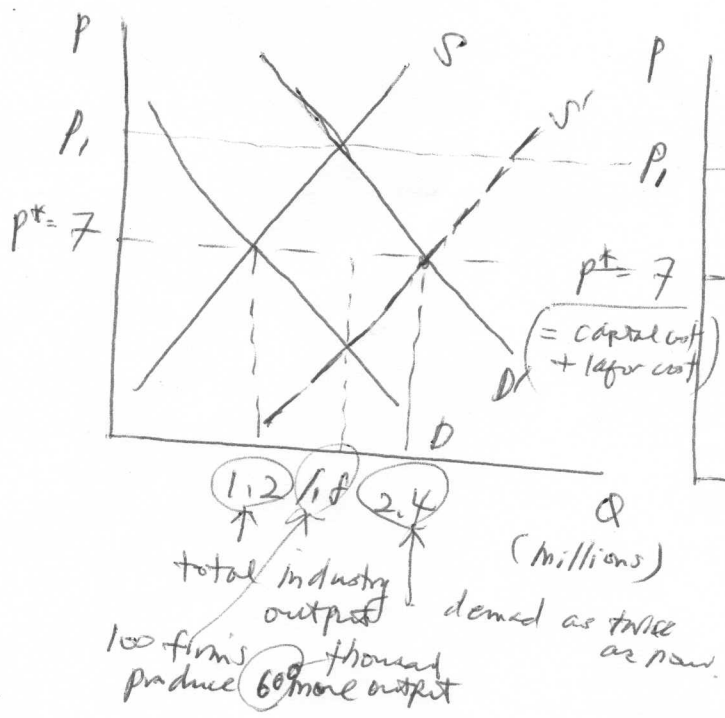 P
S
P
P₁
S'
P₁
P* = 7
P* = 7
= capital cost
+ labor cost
D'
D
1.2 1.8 2.4
Q
(millions)
total industry
output
demad as twice
as now.
100 firms
produce 600 thousand
more output